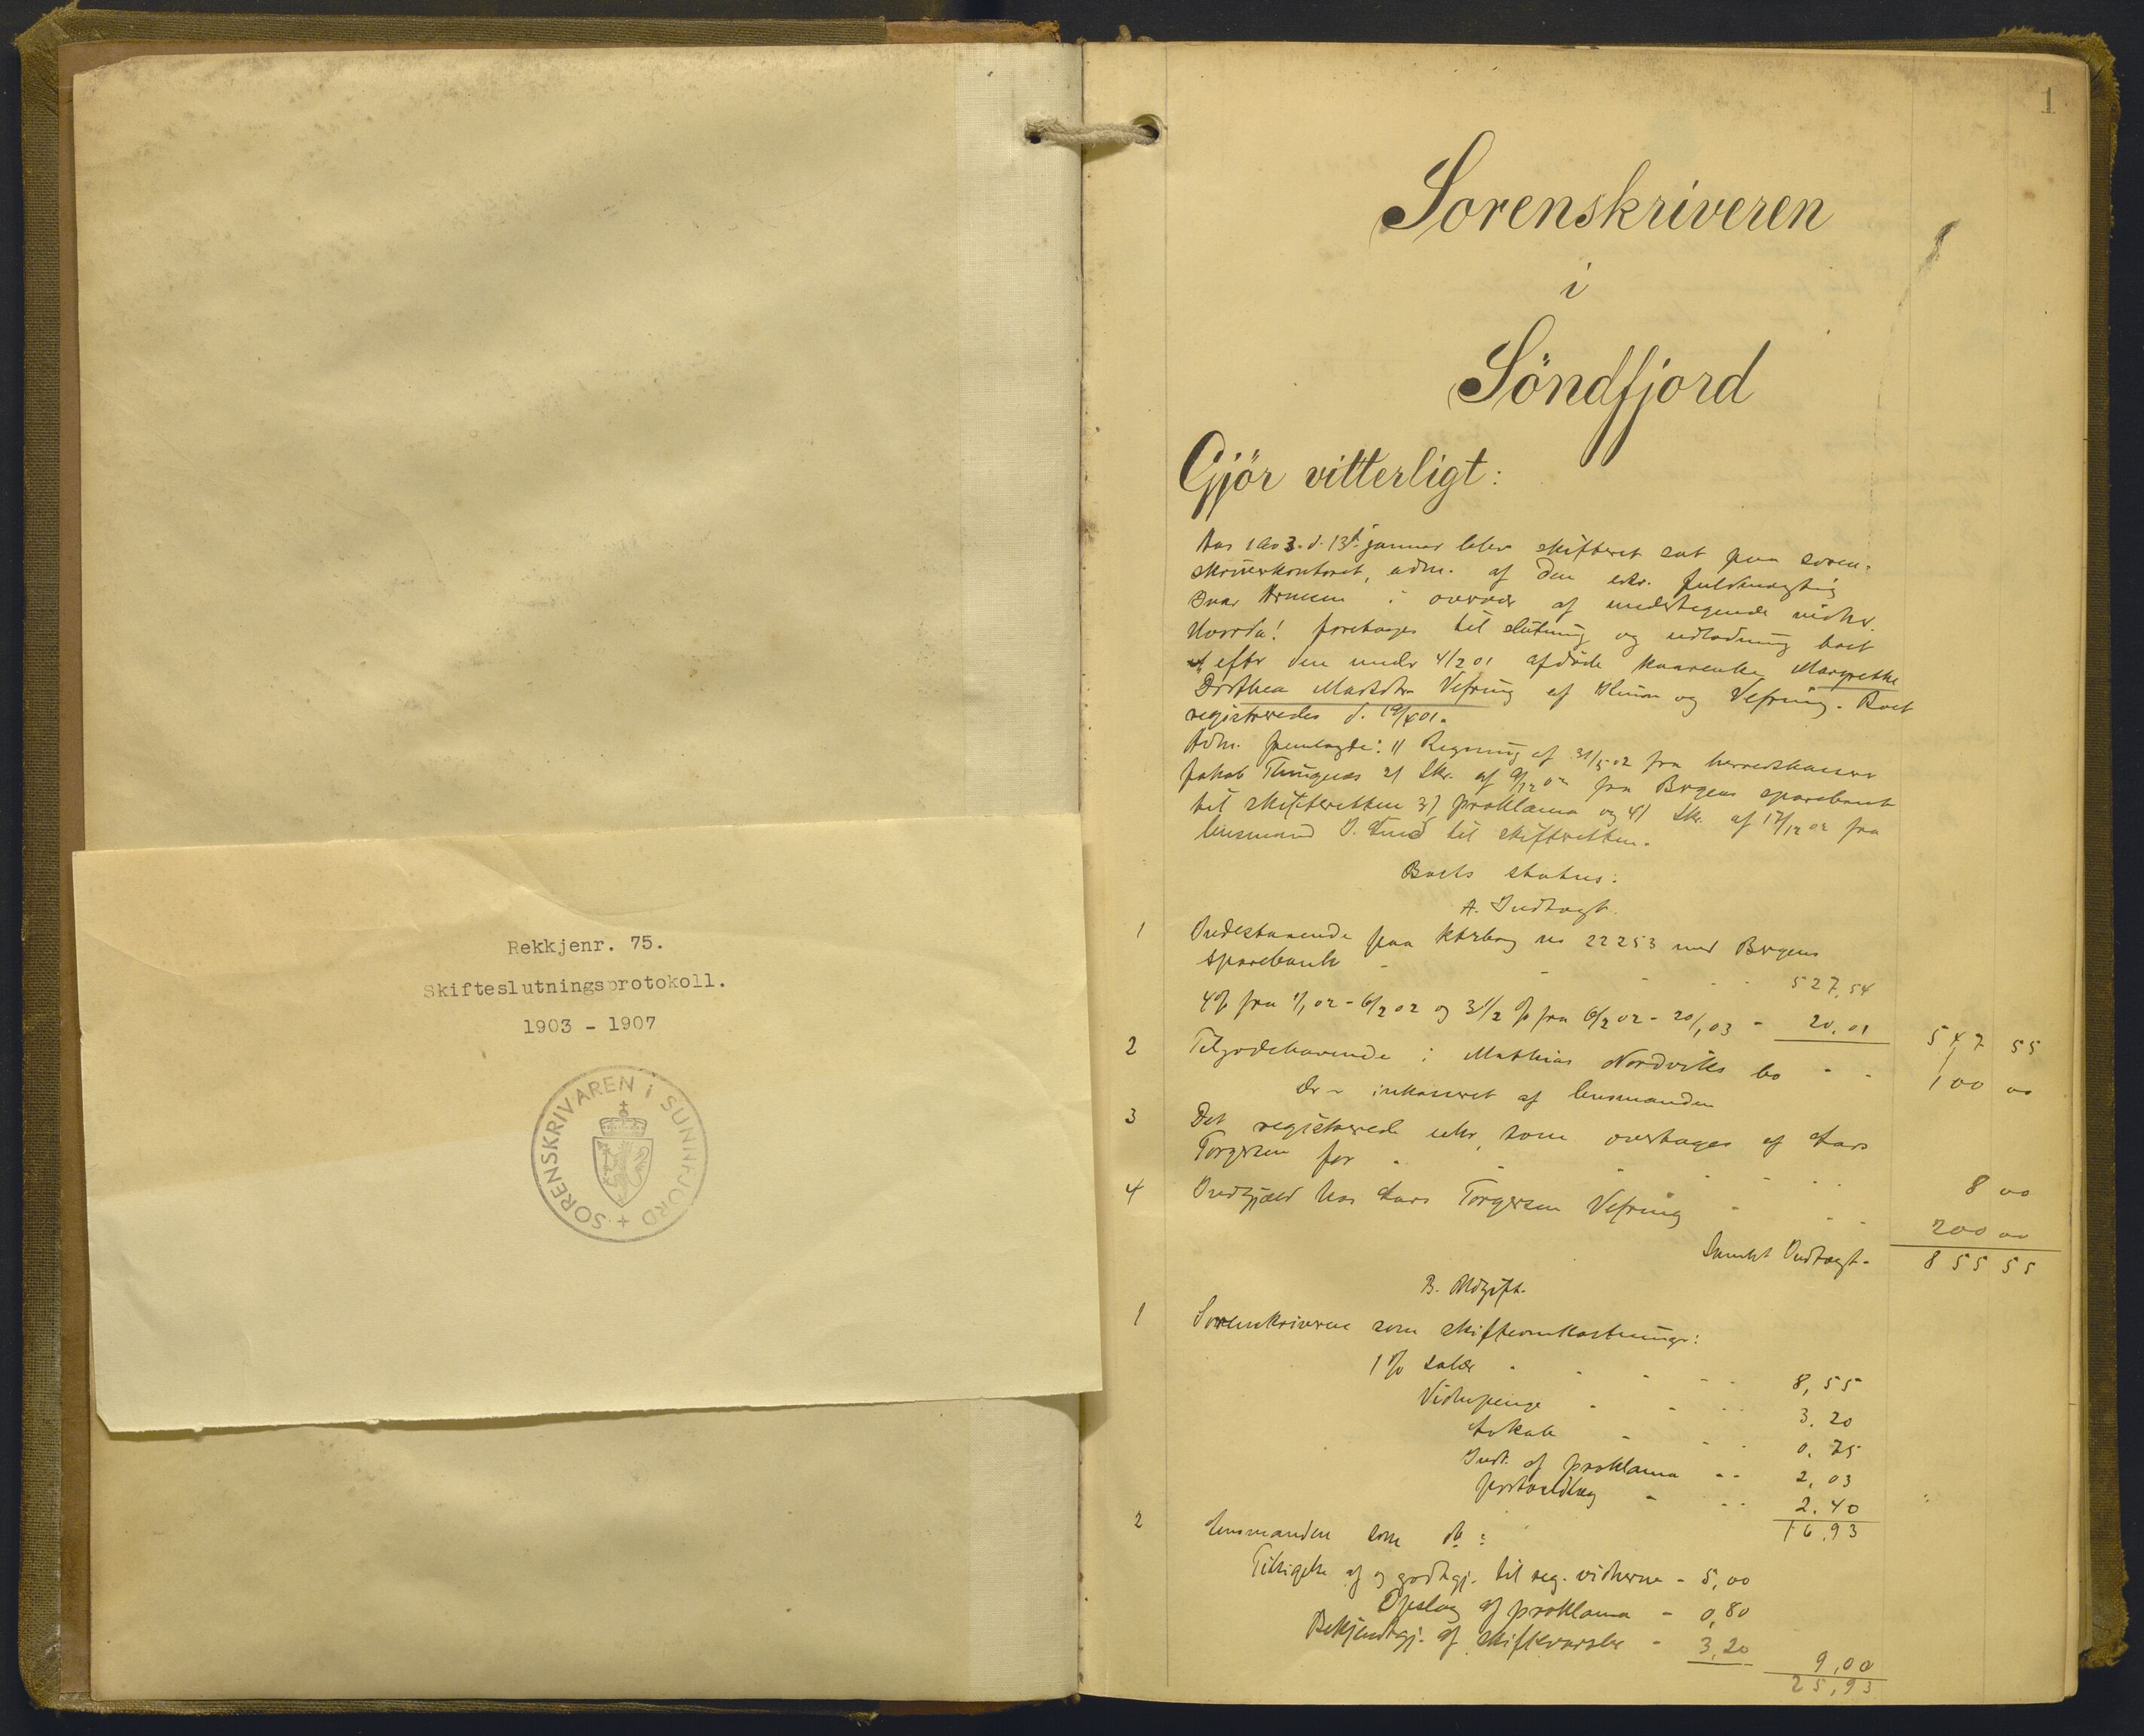 Rekkjenr. 75.
Skifteslutningsprotokoll.
1903 - 1907
SORENSKRIVAREN i SUNNFJORD +
1
Sorenskriveren
i
Söndfjord
Gjör vitterligt:
Aar 1903 d. 13de januar blev skifteret sat paa soren-
skriverkontoret, adm. af den edsv. fuldmægtig
i overvær af undertegnede vidner.
Hvorda! foretoges til slutning og udlodning boet
efter den under 4/2 01 afdöde kaarenke Margrethe
Dorthea Vefring af og Vefring. Boet
registreredes d. 19/4 01.
Adm. fremlagde: 1) Regning af 31/5 02 fra herredskasserer
Jakob 2) Skr. af 9/12 02 fra Bergens sparebank
til skifteretten 3) proklama og 4) Skr. af 17/12 02 fra
lensmand J. Lund til skifteretten.
Boets status:
A. Indtægt.
1 Indestaaende paa ktrbog no 22253 med Bergens
sparebank - - - - - 527,54
4% fra 1/1 02 - 6/2 02 og 3 1/2 % fra 6/2 02 - 20/1 03 - 20,01 547 55
2 Tilgodehavende i Mathias Nordviks bo - - 100 00
Er - inkasseret af lensmanden
3 Det registrerede uhr, som overtages af Lars
Torgersen for - - - - - 8 00
4 Indgjæld hos Lars Torgersen Vefring - - - 200 00
Samlet Indtægt - 855 55
B. Udgift.
1 Sorenskriveren som skifteomkostninger:
1% Salær - - - - - 8,55
Vidnepenge - - - - 3.20
Lokale - - - 0.75
Indr. af proklama - - 2,03
Portoudlæg - - - 2.40
16,93
2 Lensmanden som do:
Tilsigelse af og godtgj. til reg. vidnerne - 5,00
Opslag af proklama - 0,80
Bekjendtgj. af skiftevarsler - 3,20 9,00
25,93